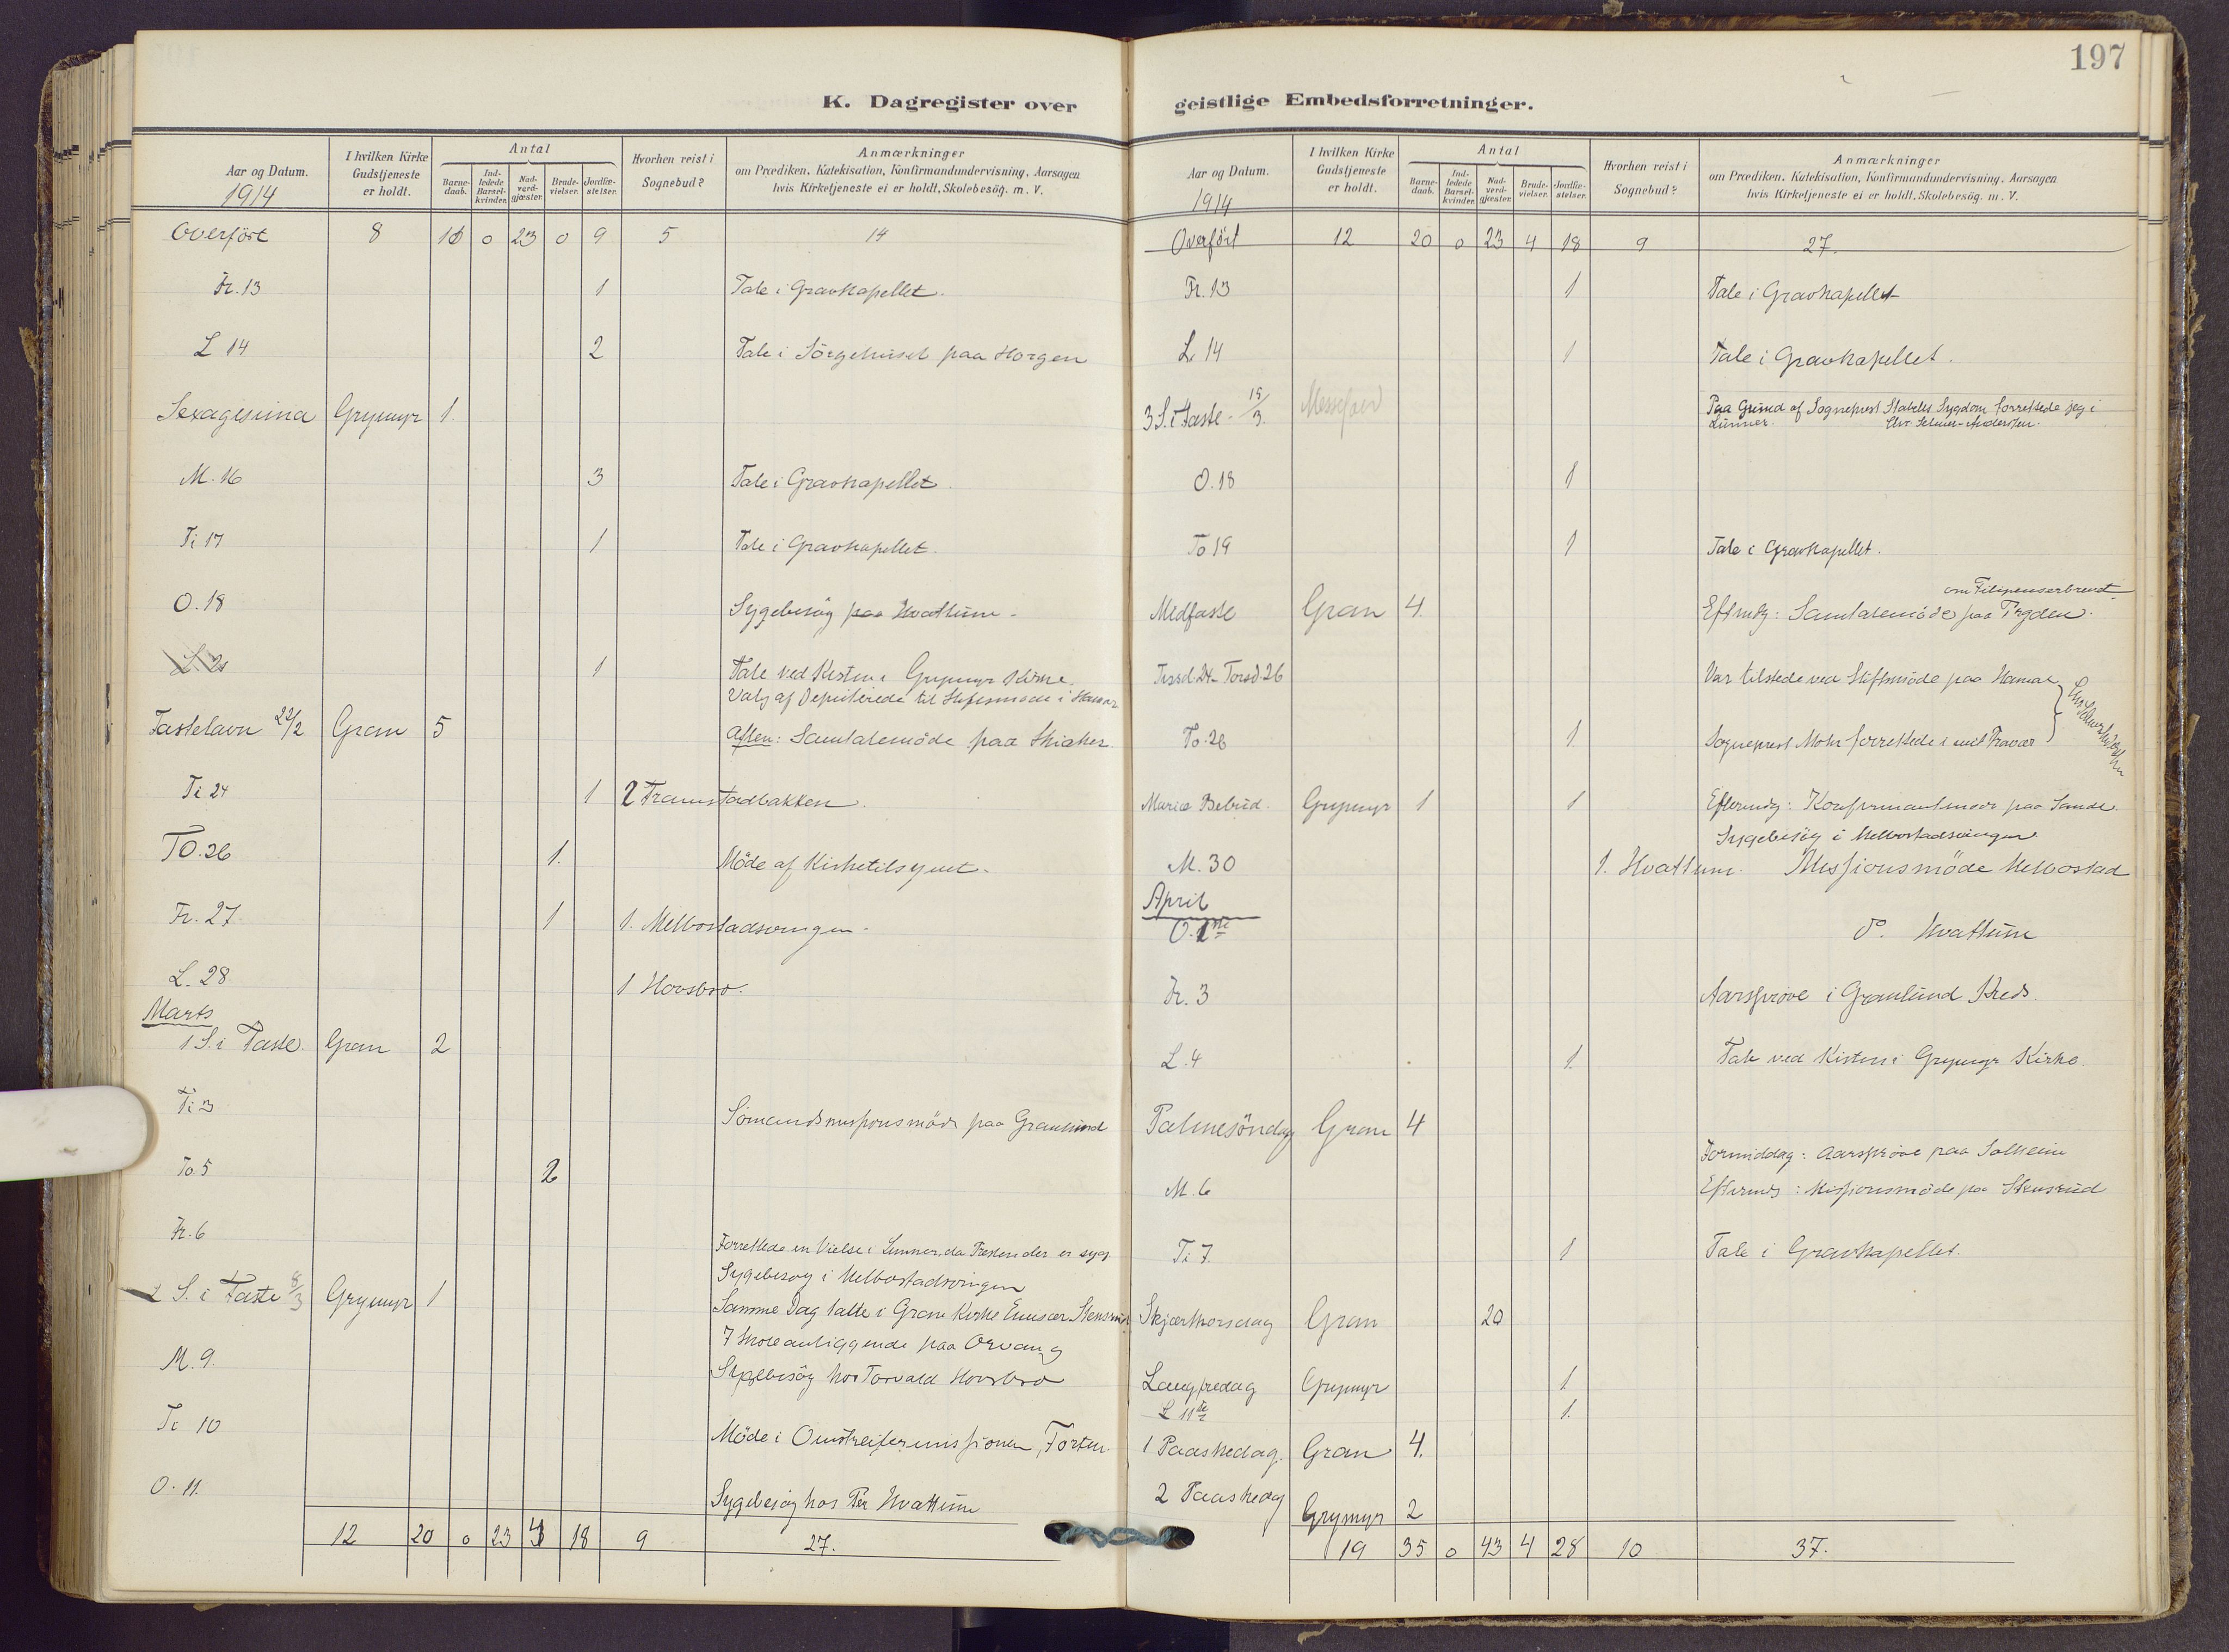 197
K. Dagregister over
Aar og Datum.
1914
I hvilken Kirke Gudstjeneste er holdt.
Antal
Barnedaab.
Indledede Barselkvinder.
Nadverdgjæster.
Brudevielser.
Jordfæstelser.
Hvorhen reist i Sognebud?
Anmærkninger
om Prædiken, Katekisation, Konfirmandundervisning, Aarsagen
hvis Kirketjeneste ei er holdt, Skolebesög. m. V.
Overført 8 10 0 23 0 9 5 14
Fr. 13 1 Tale i Gravkapellet.
L 14 2 Tale i Sörgehuset paa Horgen
Sexagesima Grymyr 1.
M. 16 3 Tale i Gravkapellet.
Ti 17 1 Tale i Gravkapellet.
O. 18 Sygebesög paa Hvattum.
L 21 1 Tale ved Kisten i Grymyr Kirke.
Valg af Deputerede til Stiftsmøde i Hamar
Fastelavn 22/2 Gran 5 Aften: Samtalemöde paa Skiaker.
Ti 24 1 2 Framstadbakken.
To. 26 1. Möde af Kirketilsynet.
Fr. 27. 1 1. Melbostadsvingen.
L. 28 1 Hovsbro.
Marts
1 S. i Faste. Gran 2
Ti 3 Sömandsmissionsmöde paa Granlund
To. 5 2
Fr. 6 Forrettede en Vielse i Lunner, da Presten der er syg.
Sygebesög i Melbostadsvingen
2 S. i Faste 8/3 Grymyr 1 Samme Dag talte i Gran Kirke Emissær Stensrud
7 Skoleanliggende paa Orvang
M. 9. Sygebesög hos Torvald Hovsbro
Ti 10 Möde i Omstreifermissionen, Forten.
O. 11. Sygebesög hos Per Hvattum
12 20 0 23 4 18 9 27.
geistlige Embedsforretninger.
Aar og Datum.
1914
I hvilken Kirke Gudstjeneste er holdt.
Antal
Barnedaab.
Indledede Barselkvinder.
Nadverdgjæster.
Brudevielser.
Jordfæstelser.
Hvorhen reist i Sognebud?
Anmærkninger
om Prædiken, Katekisation, Konfirmandundervisning, Aarsagen
hvis Kirketjeneste ei er holdt, Skolebesög. m. V.
Overfört 12 20 0 23 4 18 9 27.
Fr. 13 1 Tale i Gravkapellet
L. 14 1 Tale i Gravkapellet.
3 S. i Faste - 15/3. Messefald Paa Grund af Sogneprest Stabells Sygdom forrettede jeg i
Lunner. Chr. Selmer-Anderssen.
O. 18 1
To 19 1 Tale i Gravkapellet.
om Filipenserbrevet.
Midfaste Gran 4. Eftmdg: Samtalemöde paa Tingelen.
Tirsd. 24 - Torsd. 26 Var tilstede ved Stiftsmöde paa Hamar
To. 26 1 Sogneprest Mohr forrettede i mit Fravær
Mariæ Bebud. Grymyr 1 1 Eftermdg: Konfirmantmøde paa Sande.
Sygebesög i Melbostadsvingen
M. 30 1. Hvattum. Missionsmöde Melbostad
April
O. 1ste do. Hvattum
Fr. 3 Aarsprøve i Granlund Kreds.
L. 4 1. Tale ved Kisten i Grymyr Kirke.
Palmesöndag Gran 4
Formiddag: Aarsprøve paa Solheim
M. 6 Efterm: Missionsmöde paa Stensrud
Ti 7. 1 Tale i Gravkapellet.
Skjærtorsdag Gran 20
Langfredag Grymyr 1
L 11te 1.
1 Paaskedag. Gran 4.
2 Paaskedag Grymyr 2
19 35 0 43 4 28 10 37.